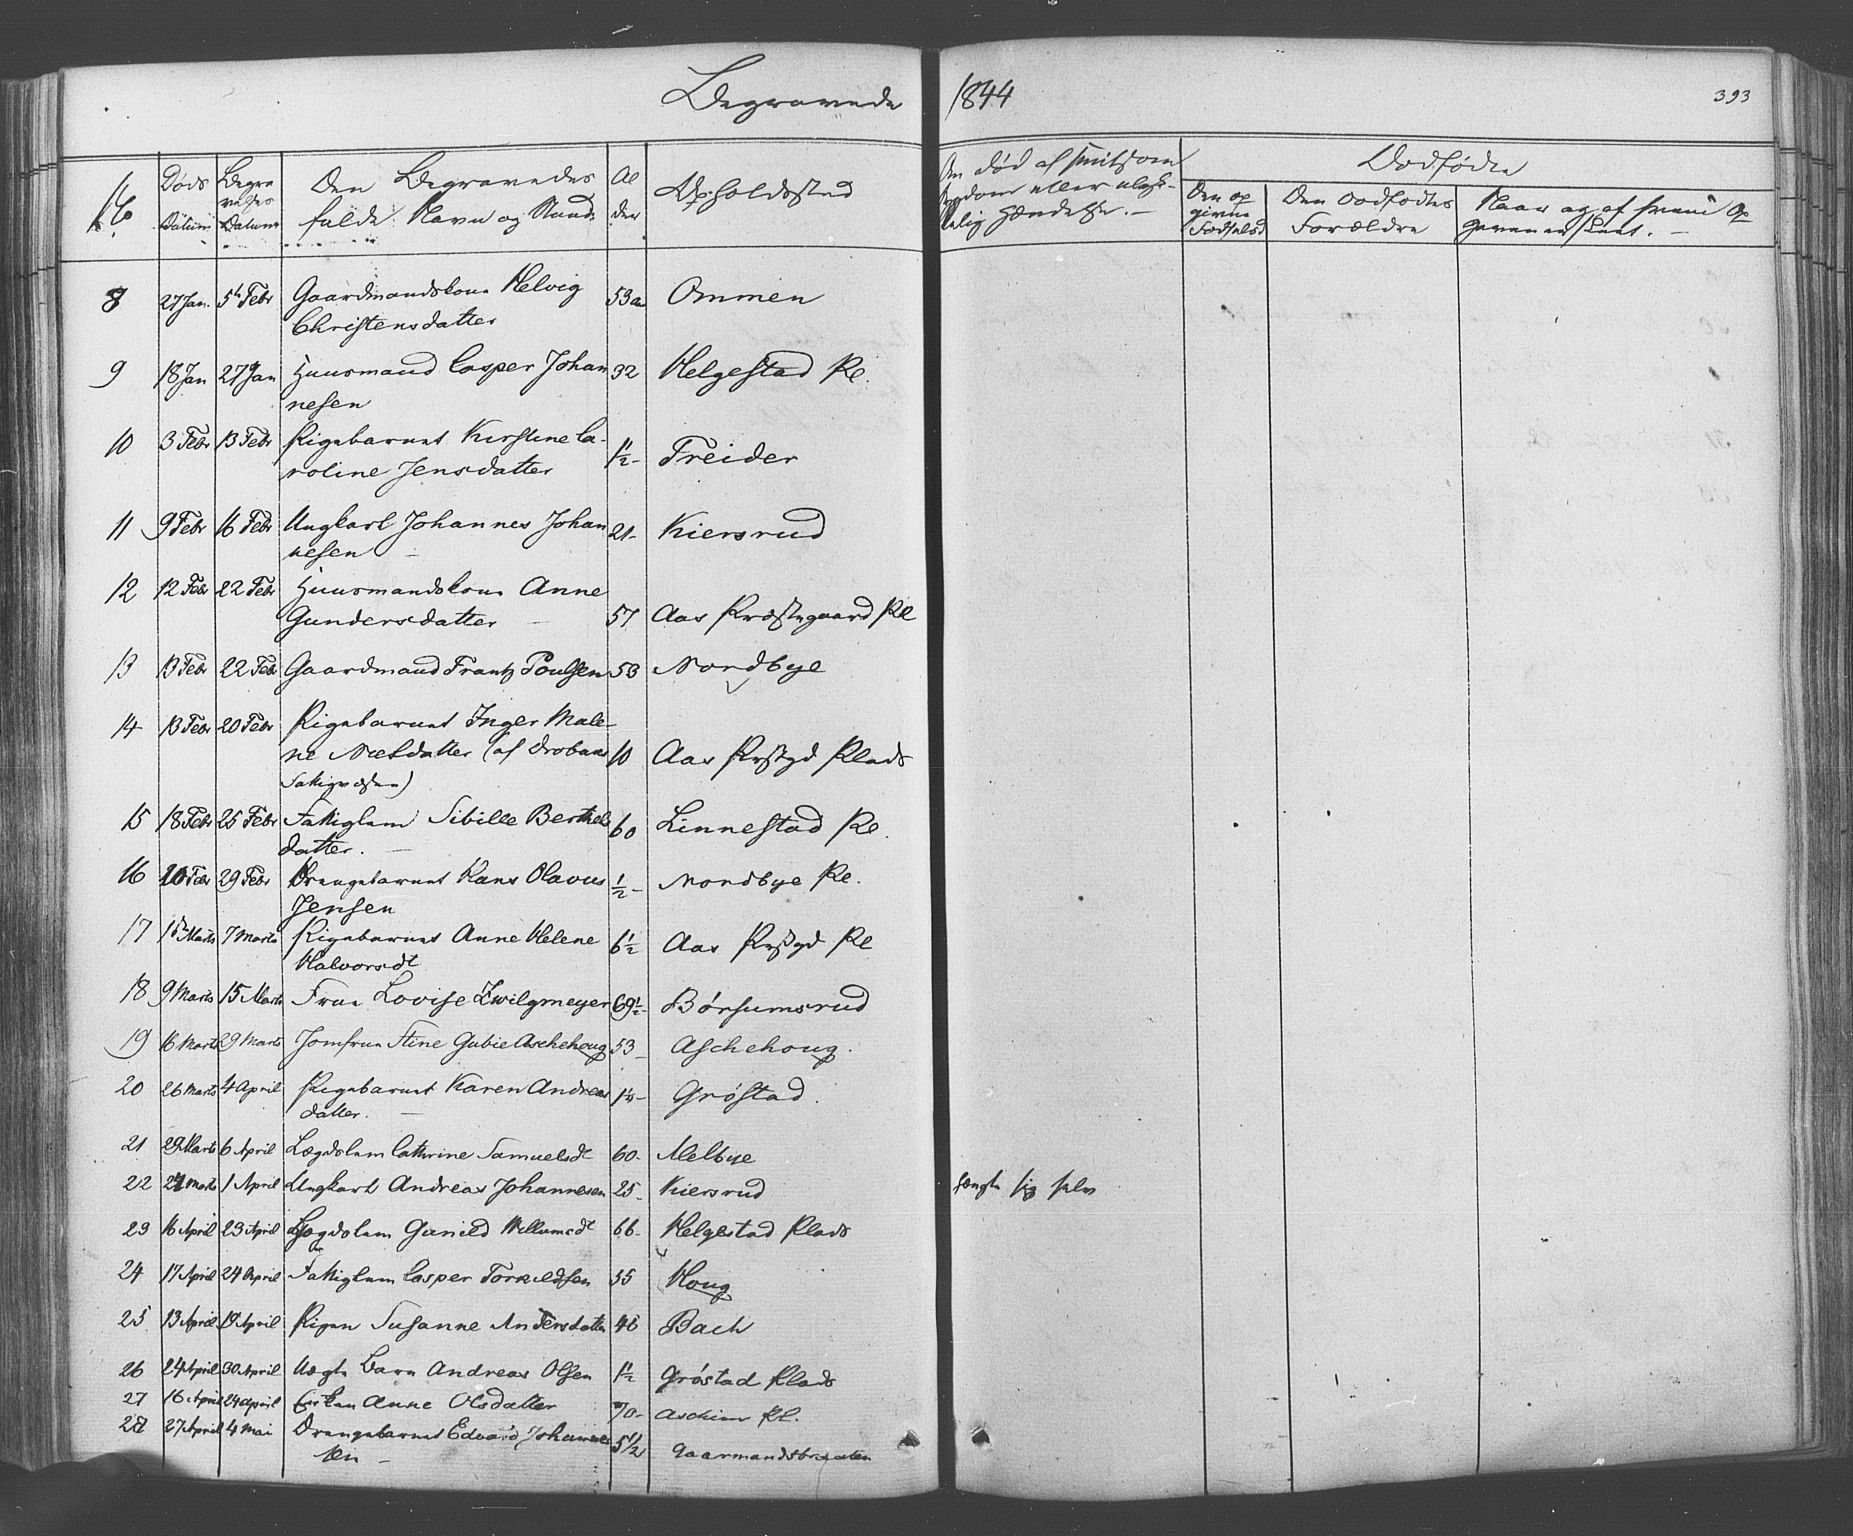 Begravede 1844
393
No
Døds Datum
Begravelses Datum
Den Begravedes fulde Navn og Stand
Alder
Opholdsstad
Om død af smitsom Sygdom eller ulykkelig Hændelse. —
Dødfødte
Den opgivne Fødselsd
Den Dødfødtes Forældre
Naar og af hvem Opgaven er skeet. —
8 27 Jan. 5te Febr Gaardmandskone Helvig 53 Ommen
Christensdatter
9 18 Jan 27 Jan Huusmand Casper Johan 32 Helgestad Pl.
nesen
10 3 Febr 13 Febr Pigebarnet Kirstine Ca- 1½ - Freider
roline Jensdatter
11 9 Febr 16 Febr Ungkarl Johannes Johan 21 - Kiersrud
nesen —
12 12 Febr 22 Febr Huusmandskone Anne
Gundersdatter — 57 Aas Præstegaard Pl
13 13 Febr 22 Febr Gaardmand Frantz Poulsen 53 Nordbye
14 13 Febr 20 Febr Pigebarnet Inger Male-
ne Nielsdatter (af Drobaks 10 Aas Prstgd Plads
Fatigvæsen)
15 18 Febr 25 Febr Fattiglem Sibille Berthels 60 Linnestad Pl.
datter. —
16 20 Febr 29 Febr Drengebarnet Hans Olavus ½ - Nordbye Pl.
Jensen
17 1ste Marts 7 Marts Pigebarnet Anne Helene 6½ Aas Prstgd Pl
Halvorsdt
18 9 Marts 15 Marts Frue Lovise Zwilgmeyer 69½ - Børsumsrud
19 16 Marts 29 Marts Jomfrue Stine Gubie Aschehoug 53 - Aschehoug.
20 26 Marts 4 April Pigebarnet Karen Andreas Grøstad.
datter. —
21 29 Marts 6 April Lægdslem Cathrine Samuelsdt 60 - Melbye
22 Marts 1 April Ungkarl Andreas Johannesen 25 - Kiersrud hængte sig selv
23 16 April 23 April Lægdslem Gunild Willumsdt 66 - Helgestad Plads
24 17 April 24 April Fattiglem Casper Torkildsen 55 Houg
25 13 April 19 April Pigen Susanne Andersdatter 46 Bach
26 24 April 30 April Uægte Barn Andreas Olsen 1½ Grøstad Plads
27 16 April 24 April Enken Anne Olsdatter 70 - Aschim Pl.
28 27 April 4 Mai Drengebarnet Edvard Johannes 5½ Gaarmandsbraaten
sen —